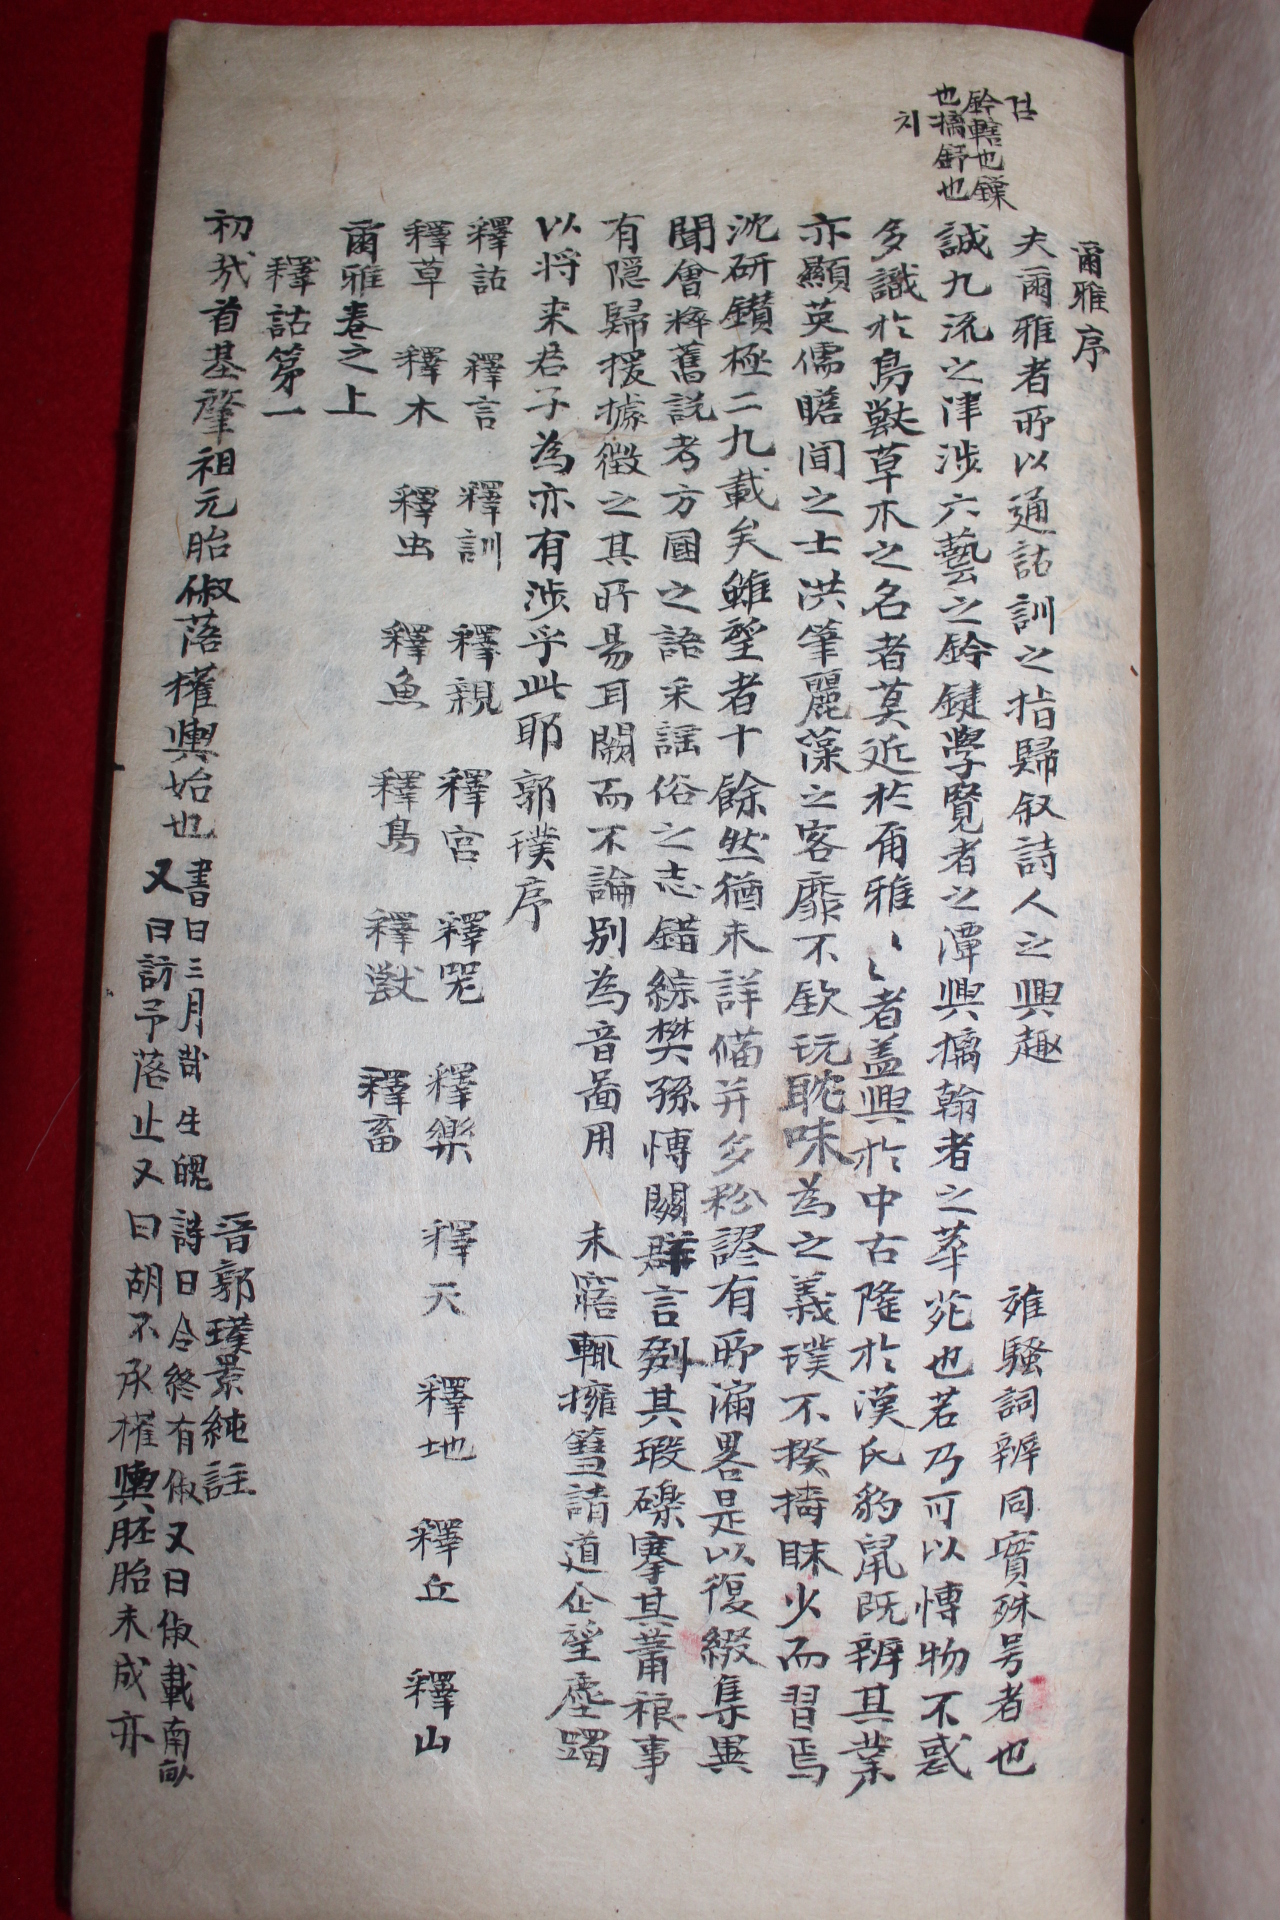 검
鈐轄也鏁
也摛舒也
치
爾雅序
夫爾雅者所以通詁訓之指歸叙詩人之興趣 雖騷詞辨同實殊号者也
誠九流之津涉六藝之鈐鍵學覽者之潭奧摛翰者之華苑也若乃可以愽物不惑
多識於鳥獸草木之名者莫近於爾雅〻〻者盖興於中古隆於漢氏豹鼠既辨其業
亦顯英儒贍聞之士洪筆麗藻之客靡不欽玩耽味為之義璞不揆擣昧少而習焉
沈研鑚極二九載矣雖註者十餘然猶未詳備幷多粉謬有所漏畧是以復綴集異
聞會粹舊說考方國之語采謡俗之志錯綜樊孫愽關群言剟其瑕礫搴其蕭稂事
有隱歸援據徵之其所易耳闕而不論别為音啚用 未寤輒擁篲請道企望塵躅
以将来君子為亦有涉乎此耶 郭璞序
釋詁 釋言 釋訓 釋親 釋宫 釋器 釋樂 釋天 釋地 釋丘 釋山
釋草 釋木 釋虫 釋魚 釋鳥 釋獸 釋畜
爾雅卷之上
釋詁第一 晋郭璞景純註
初哉首基肇祖元胎俶落權輿始也 書曰三月哉生魄詩曰令終有俶又曰俶載南畝
又曰訪予落止又曰胡不承權輿胚胎未成亦